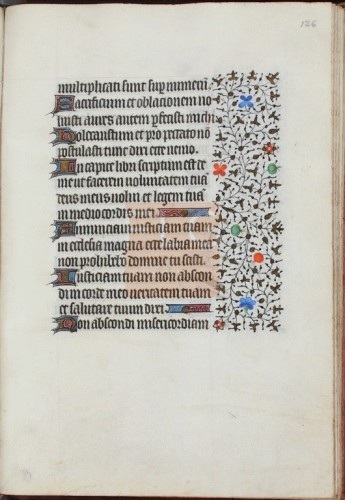 126
multiplicati sunt sup numerū
Sacrificium et oblacionem no
luisti aures autem pfecisti michi
Holocaustum et pro peccato nō
postulasti tunc dixi ecce uenio
In capite libri scriptum est de
me ut facerem uoluntatem tuā
deus meus uolui et legem tuā
in medio cordis mei
Annunciaui iusticiam tuam
in ecclesia magna ecce labia mea
non prohibebo domine tu scisti
Iusticiam tuam non abscon
di in corde meo ueritatem tuam
et salutare tuum dixi
Non abscondi misericordiam